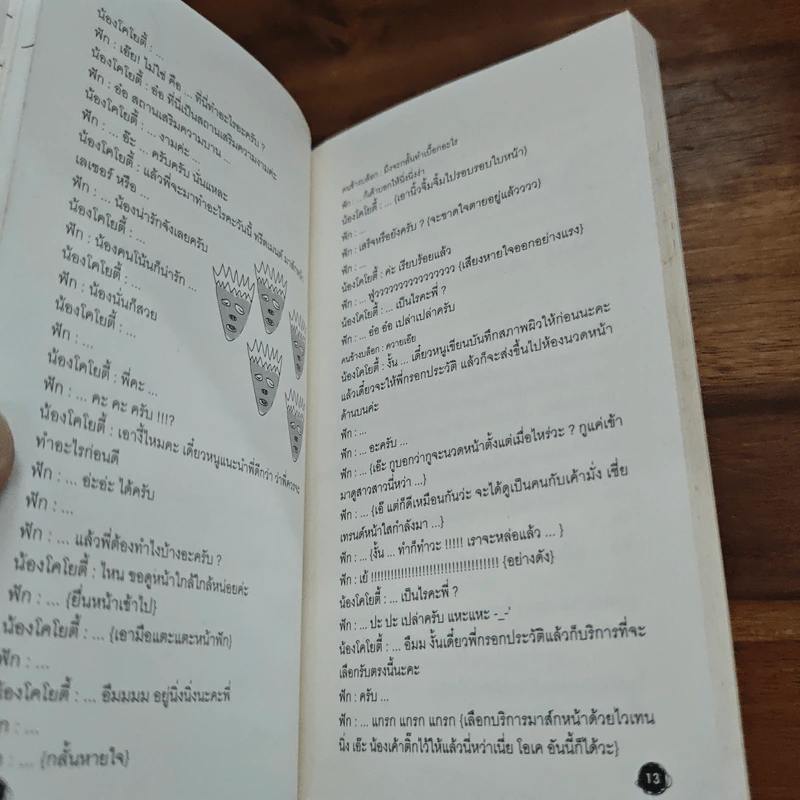 น้องโคโยตี้ : ...
ฟัก : เอ๊ย! ไม่ใช่ คือ ... ที่นี่ทำอะไรอะครับ ?
น้องโคโยตี้ : อ๋อ ที่นี่เป็นสถานเสริมความงามค่ะ
ฟัก : อ๋อ สถานเสริมความบาน ...
น้องโคโยตี้ : ... งามค่ะ ...
ฟัก : ... อ๊ะ ... ครับครับ นั่นแหละ
น้องโคโยตี้ : แล้วพี่จะมาทำอะไรคะวันนี้ ทรีตเมนต์
เลเซอร์ หรือ ...
ฟัก : ... น้องน่ารักจังเลยครับ
น้องโคโยตี้ : ...
ฟัก : น้องคนโน้นก็น่ารัก ...
น้องโคโยตี้ : ...
ฟัก : น้องนั่นก็สวย
น้องโคโยตี้ : ...
ฟัก : ...
น้องโคโยตี้ : พี่คะ ...
ฟัก : ... คะ คะ ครับ !!!?
น้องโคโยตี้ : เอางี้ไหมคะ เดี๋ยวหนูแนะนำพี่ดีกว่า ว่าพี่ควรจะ
ทำอะไรก่อนดี
ฟัก : ... อ่ะอ่ะ ได้ครับ
ฟัก : ...
ฟัก : ... แล้วพี่ต้องทำไงบ้างอะครับ ?
น้องโคโยตี้ : ไหน ขอดูหน้าใกล้ใกล้หน่อยค่ะ
ฟัก : ... {ยื่นหน้าเข้าไป}
น้องโคโยตี้ : ... {เอามือแตะแตะหน้าฟัก}
ฟัก : ...
น้องโคโยตี้ : ... อืมมมม อยู่นิ่งนิ่งนะคะพี่
: ...
: ... {กลั้นหายใจ}
คนข้างบล็อก : มึงจะกลั้นทำเบื๊อกอะไร
ฟัก : ... ก็เค้าบอกให้นิ่งนิ่งง่า
น้องโคโยตี้ : ... {เอานิ้วจิ้มจิ้มไปรอบรอบใบหน้า}
ฟัก : ...
ฟัก : เสร็จหรือยังครับ ? {จะขาดใจตายอยู่แล้วววว}
ฟัก : ...
น้องโคโยตี้ : ค่ะ เรียบร้อยแล้ว
ฟัก : ... ฟู่วววววววววววววววว {เสียงหายใจออกอย่างแรง}
น้องโคโยตี้ : ... เป็นไรคะพี่ ?
ฟัก : ... อ๋อ อ๋อ เปล่าเปล่าครับ
คนข้างบล็อก : ควายเอ๊ย
น้องโคโยตี้ : งั้น ... เดี๋ยวหนูเขียนบันทึกสภาพผิวให้ก่อนนะคะ
แล้วเดี๋ยวจะให้พี่กรอกประวัติ แล้วก็จะส่งขึ้นไปห้องนวดหน้า
ด้านบนค่ะ
ฟัก : ...
ฟัก : ... อะครับ ...
ฟัก : ... {เอ๊ะ กูบอกว่ากูจะนวดหน้าตั้งแต่เมื่อไหร่วะ ? กูแค่เข้า
มาดูสาวสาวนี่หว่า ...}
ฟัก : ... {เอ๊ แต่ก็ดีเหมือนกันว่ะ จะได้ดูเป็นคนกับเค้ามั่ง เชี่ย
เทรนด์หน้าใสกำลังมา ...}
ฟัก : ... {งั้น ... ทำก็ทำวะ !!!!! เราจะหล่อแล้ว ... }
ฟัก : เย้ !!!!!!!!!!!!!!!!!!!!!!!!!!!!!!!!!!! {อย่างดัง}
น้องโคโยตี้ : ... เป็นไรคะพี่ ?
ฟัก : ... ปะ ปะ เปล่าครับ แหะแหะ -_-'
น้องโคโยตี้ : ... อืมม งั้นเดี๋ยวพี่กรอกประวัติแล้วก็บริการที่จะ
เลือกรับตรงนี้นะคะ
ฟัก : ครับ ...
ฟัก : ... แกรก แกรก แกรก {เลือกบริการมาส์กหน้าด้วยไวเทน
นิ่ง เอ๊ะ น้องเค้าติ๊กไว้ให้แล้วนี่หว่าเนี่ย โอเค อันนี้ก็ได้วะ}
13